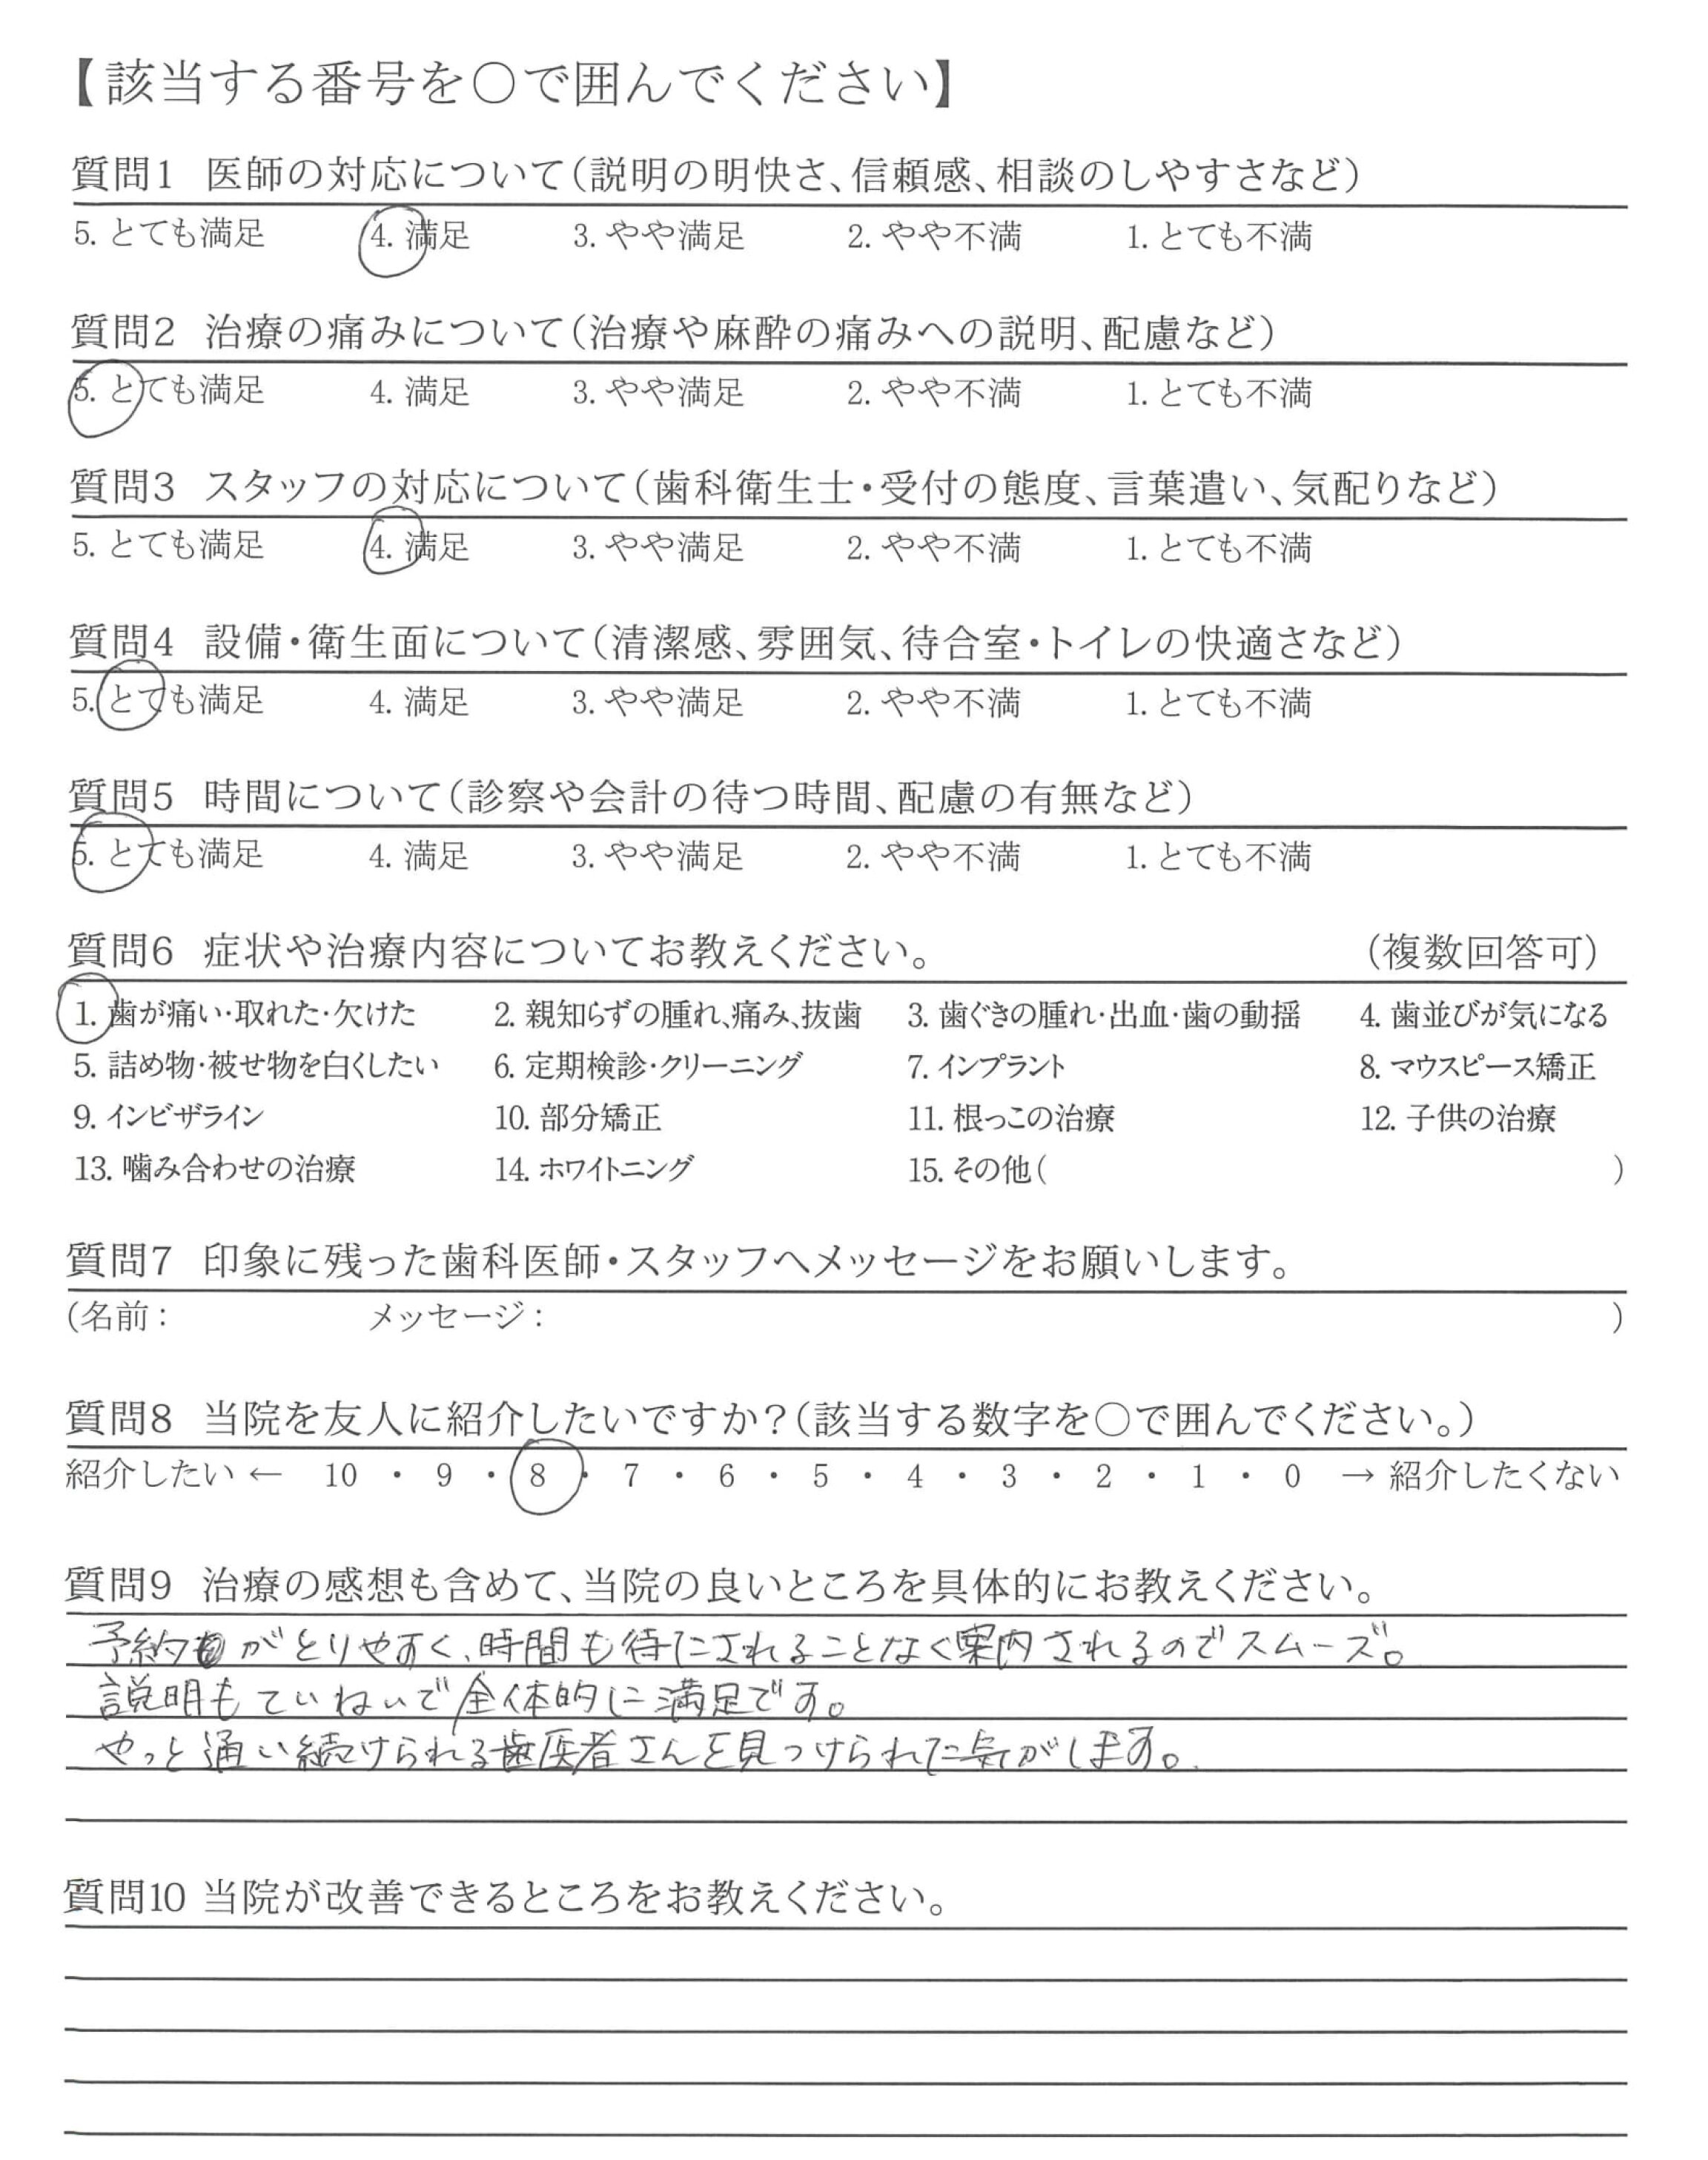 【該当する番号を○で囲んでください】
質問1 医師の対応について(説明の明快さ、信頼感、相談のしやすさなど)
5. とても満足 4. 満足 3. やや満足 2. やや不満 1. とても不満
質問2 治療の痛みについて(治療や麻酔の痛みへの説明、配慮など)
5. とても満足 4. 満足 3. やや満足 2. やや不満 1. とても不満
質問3 スタッフの対応について(歯科衛生士・受付の態度、言葉遣い、気配りなど)
5. とても満足 4. 満足 3. やや満足 2. やや不満 1. とても不満
質問4 設備・衛生面について(清潔感、雰囲気、待合室・トイレの快適さなど)
5. とても満足 4. 満足 3. やや満足 2. やや不満 1. とても不満
質問5 時間について(診察や会計の待つ時間、配慮の有無など)
5. とても満足 4. 満足 3. やや満足 2. やや不満 1. とても不満
質問6 症状や治療内容についてお教えください。 (複数回答可)
1. 歯が痛い・取れた・欠けた 2. 親知らずの腫れ、痛み、抜歯 3. 歯ぐきの腫れ・出血・歯の動揺 4. 歯並びが気になる
5. 詰め物・被せ物を白くしたい 6. 定期検診・クリーニング 7. インプラント 8. マウスピース矯正
9. インビザライン 10. 部分矯正 11. 根っこの治療 12. 子供の治療
13. 噛み合わせの治療 14. ホワイトニング 15. その他( )
質問7 印象に残った歯科医師・スタッフへメッセージをお願いします。
(名前: メッセージ: )
質問8 当院を友人に紹介したいですか?(該当する数字を○で囲んでください。)
紹介したい ← 10 ・ 9 ・ 8 ・ 7 ・ 6 ・ 5 ・ 4 ・ 3 ・ 2 ・ 1 ・ 0 → 紹介したくない
質問9 治療の感想も含めて、当院の良いところを具体的にお教えください。
予約がとりやすく、時間も待たされることなく案内されるのでスムーズ。
説明もていねいで全体的に満足です。
やっと通い続けられる歯医者さんを見つけられた気がします。
質問10 当院が改善できるところをお教えください。